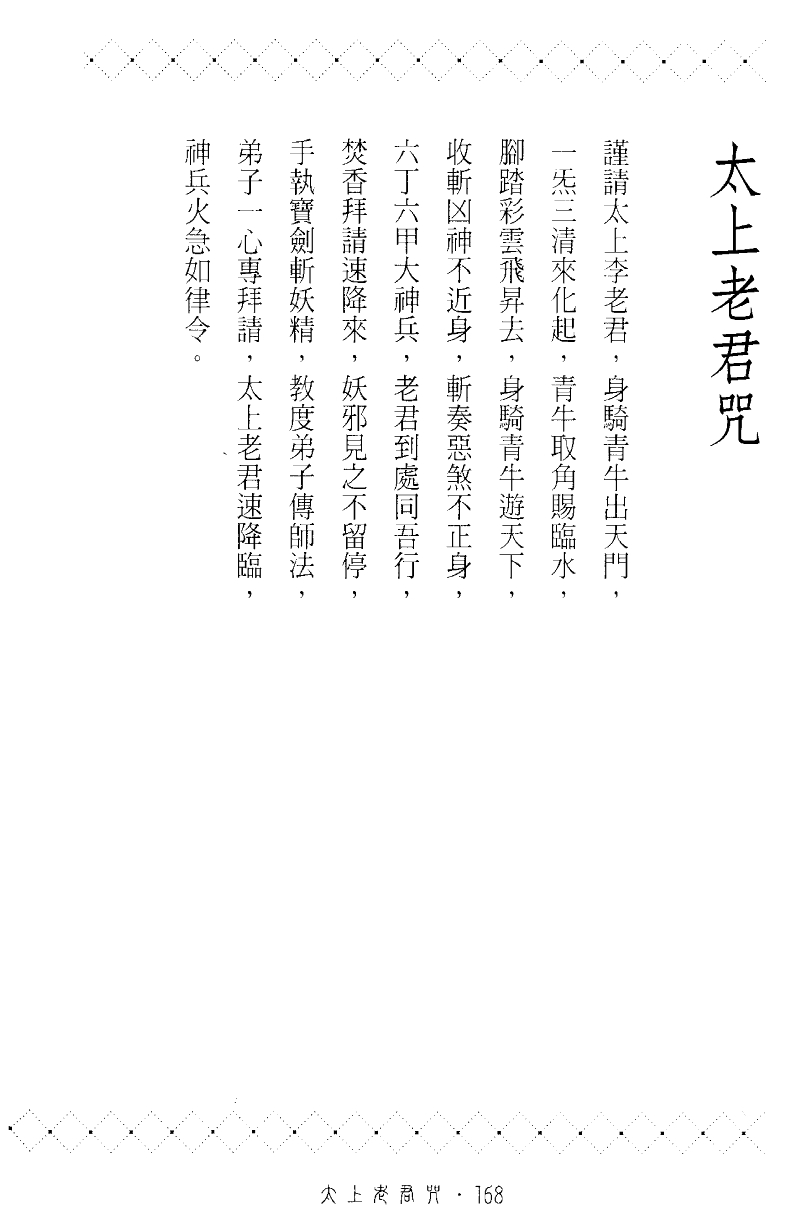 太上老君咒
謹請太上李老君，身騎青牛出天門，
一炁三清來化起，青牛取角賜臨水，
腳踏彩雲飛昇去，身騎青牛遊天下，
收斬凶神不近身，斬奏惡煞不正身，
六丁六甲大神兵，老君到處同吾行，
焚香拜請速降來，妖邪見之不留停，
手執寶劍斬妖精，教度弟子傳師法，
弟子一心專拜請，太上老君速降臨，
神兵火急如律令。
太上老君咒・168